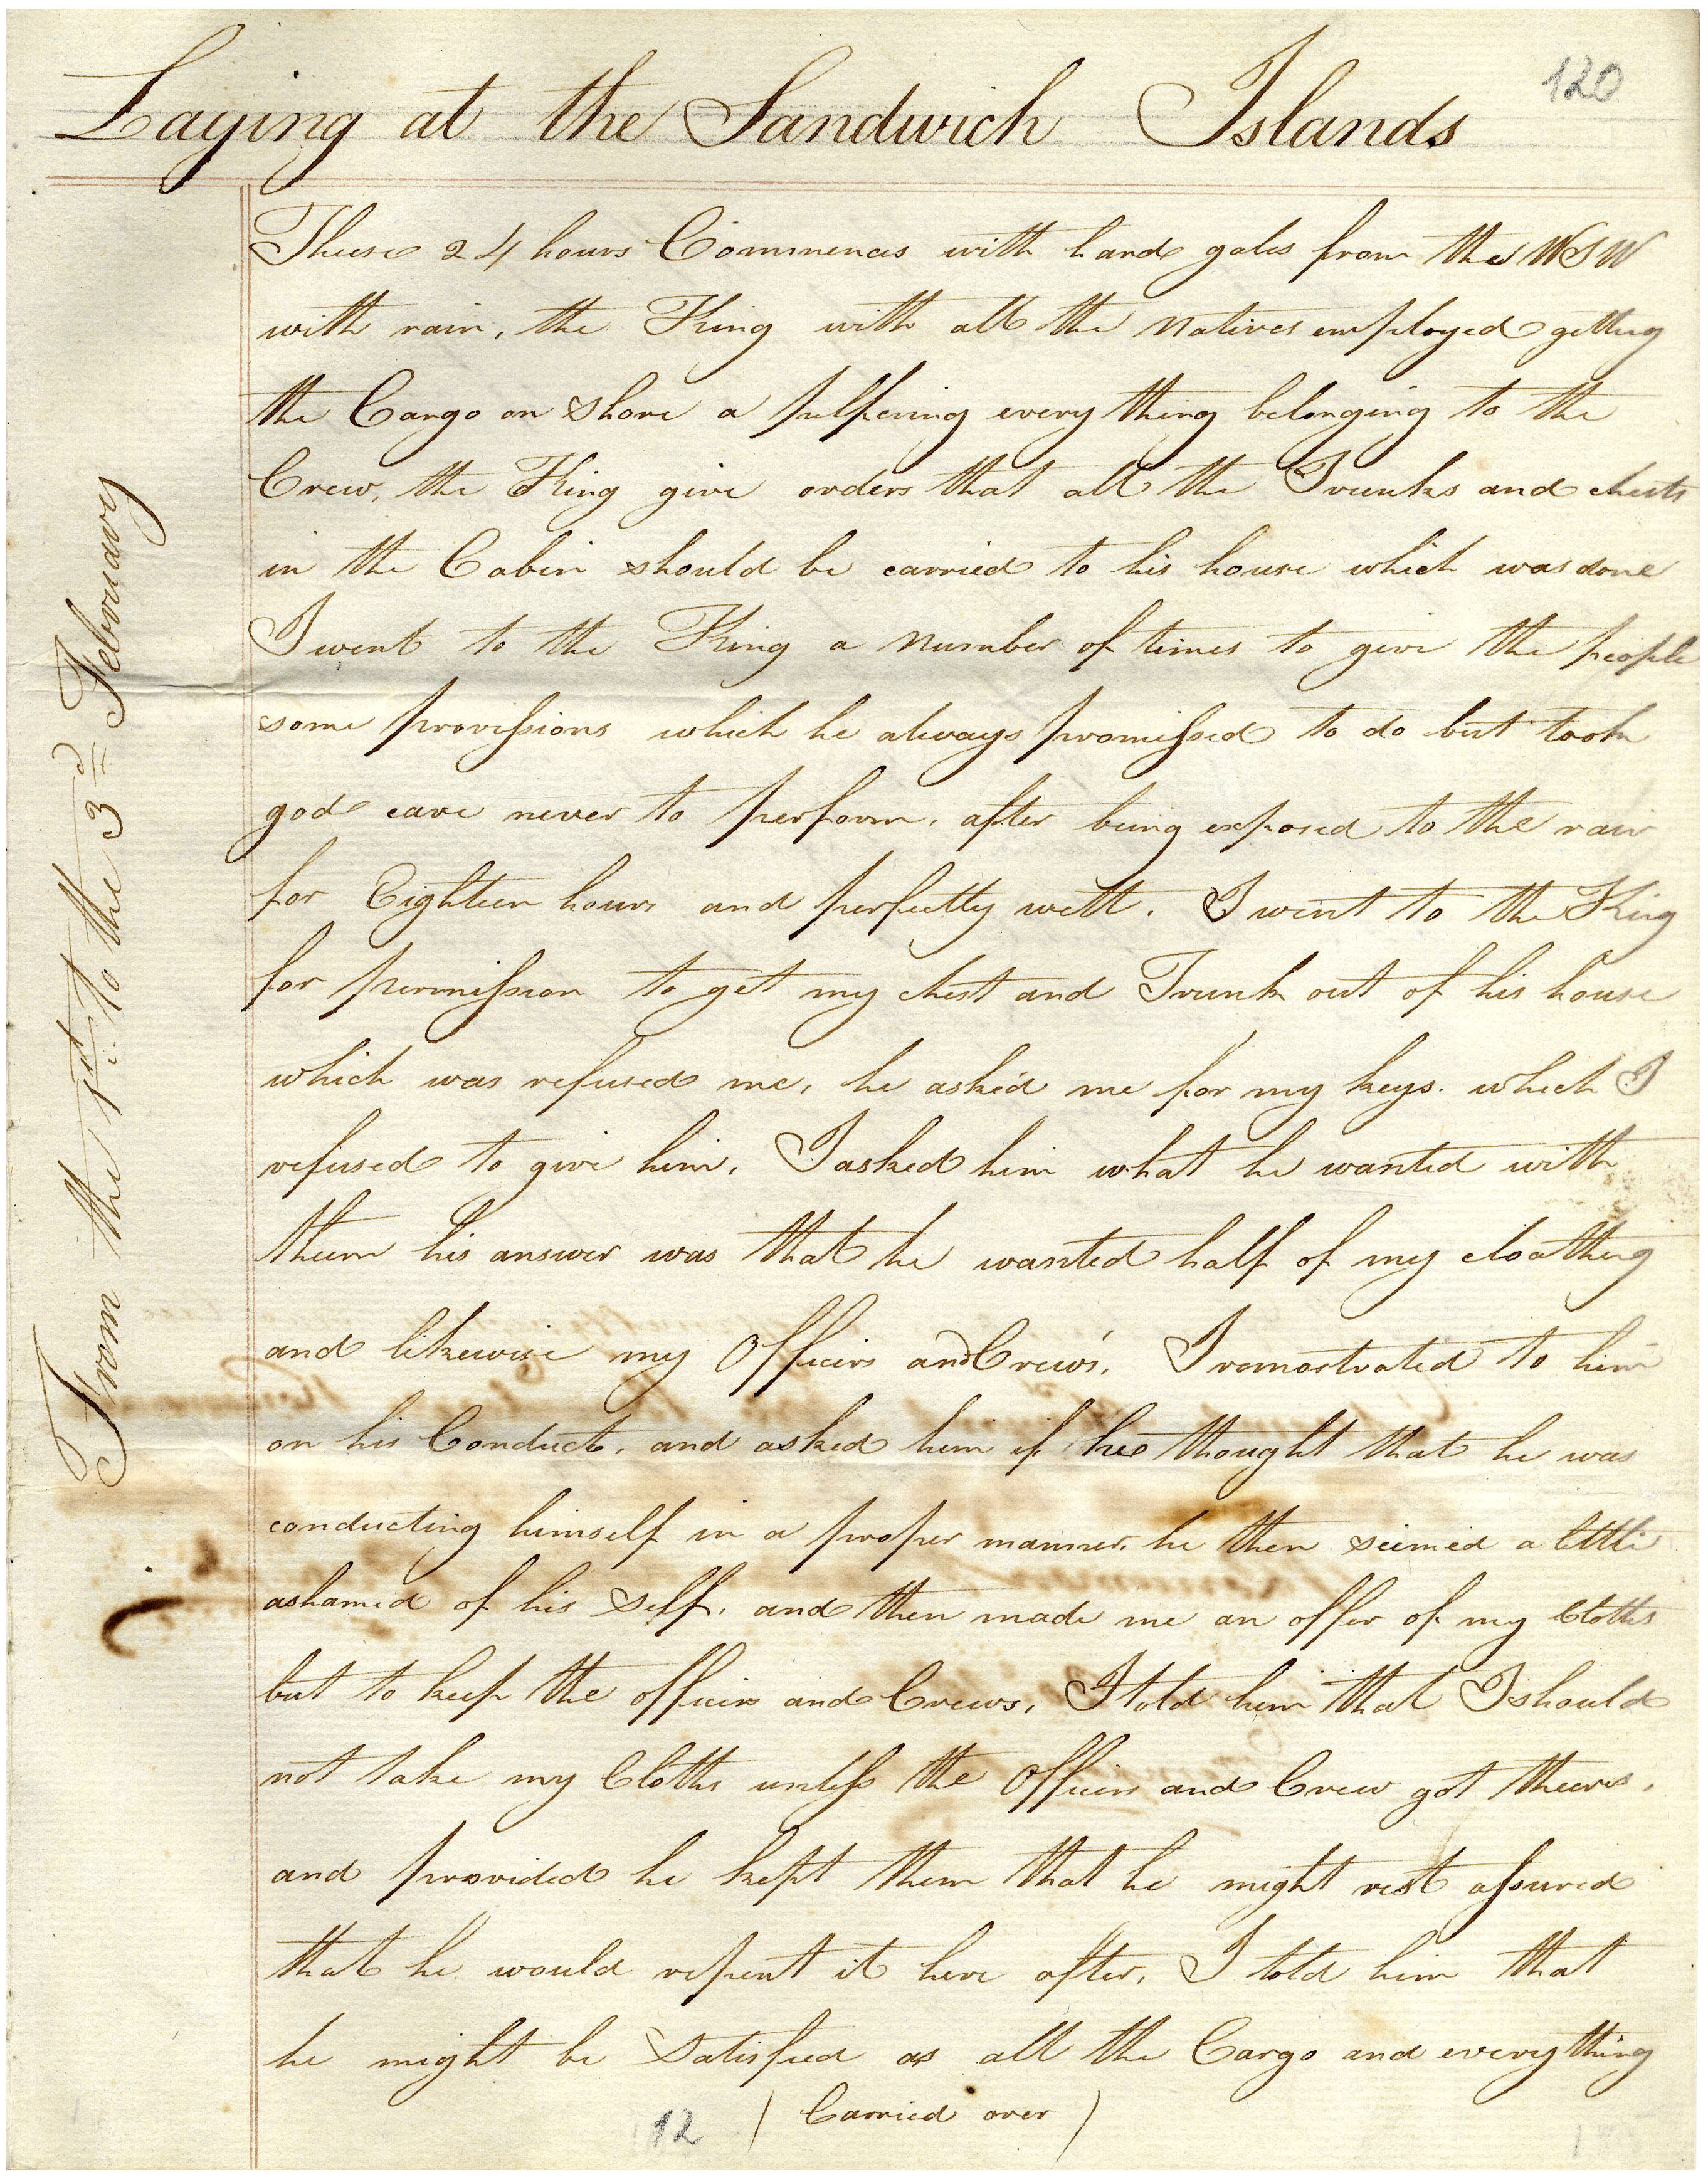 120
Laying at the Sandwich Islands
From the 1st to the 3d February
These 24 hours Commences with hard gales from the WSW
with rain, the King with all the Natives employed getting
the Cargo on Shore a pilfering every thing belonging to the
Crew, the King give orders that all the Trunks and chests
in the Cabin should be carried to his house which was done
I went to the King a Number of times to give the people
some provissions which he always promissed to do but took
god care never to perform, after being exposed to the rain
for Eighteen hours and perfectly wett. I went to the King
for permission to get my chest and Trunk out of his house
which was refused me, he asked me for my keys. which I
refused to give him, I asked him what he wanted with
them his answer was that he wanted half of my cloathing
and likewise my Officers and Crew's, I remostrated to him
on his Conduct, and asked him if he thought that he was
conducting himself in a proper manner, he then seimed a little
ashamed of his Self, and then made me an offer of my Cloths
but to keep the officers and Crews, I told him that I should
not take my Cloths unless the Officers and Crew got theirs,
and provided he kept them that he might rest assured
that he would repent it here after, I told him that
he might be Satisfied as all the Cargo and every thing
12 (Carried over)